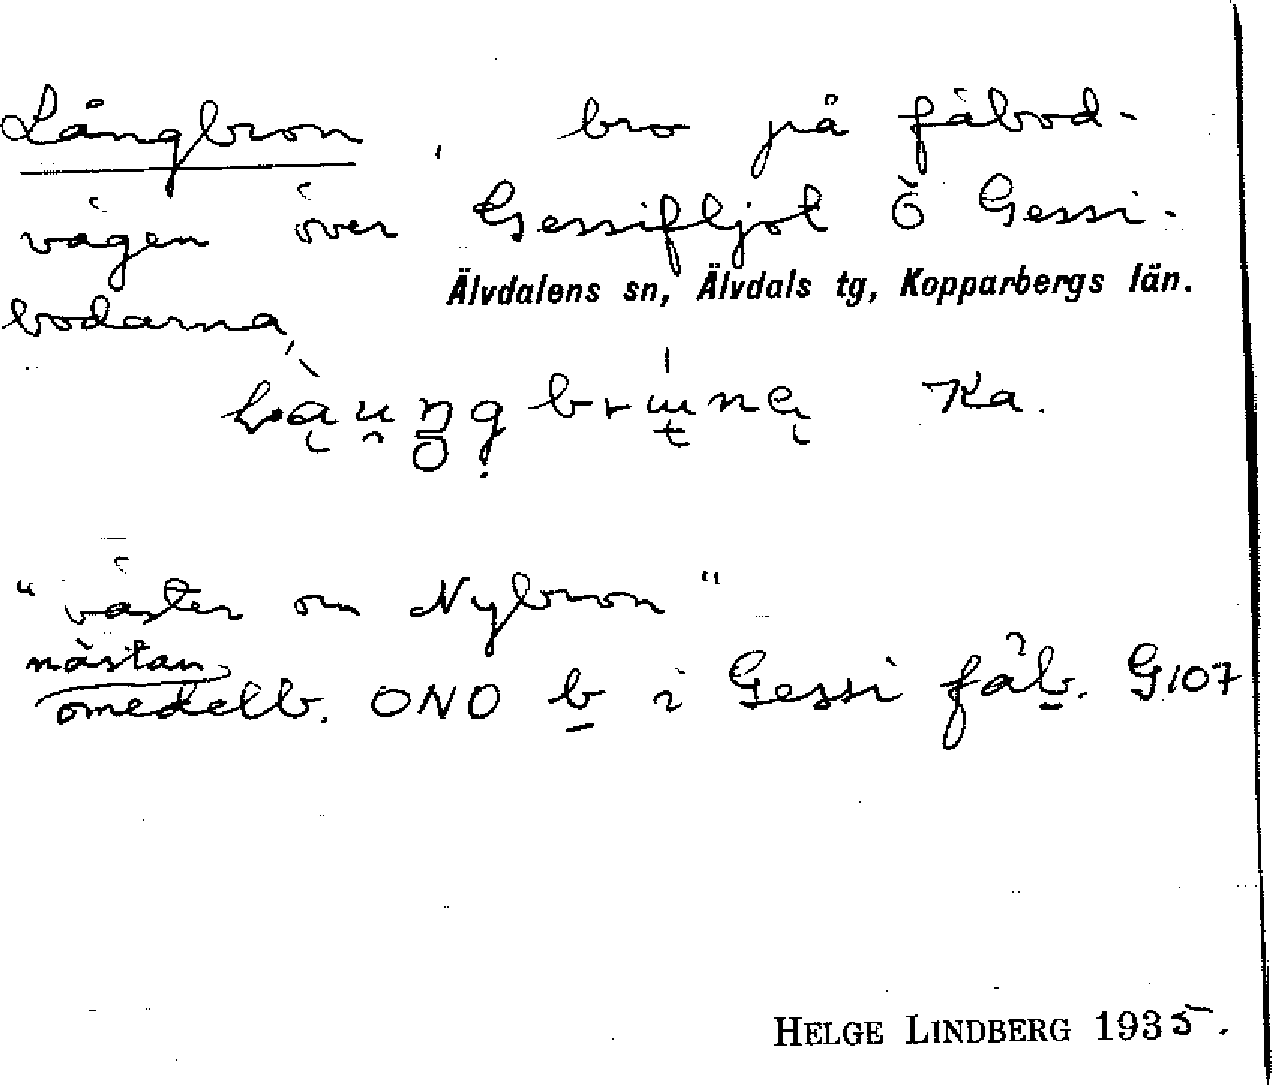 Långbron, bro på fäbod-
vägen över Gessifljot Ö Gessi-
Älvdalens sn, Älvdals tg, Kopparbergs län.
bodarna,
Ka.
"väster om Nybron"
nästan
omedelb. ONO b i Gessi fäb. G107
HELGE LINDBERG 1935.